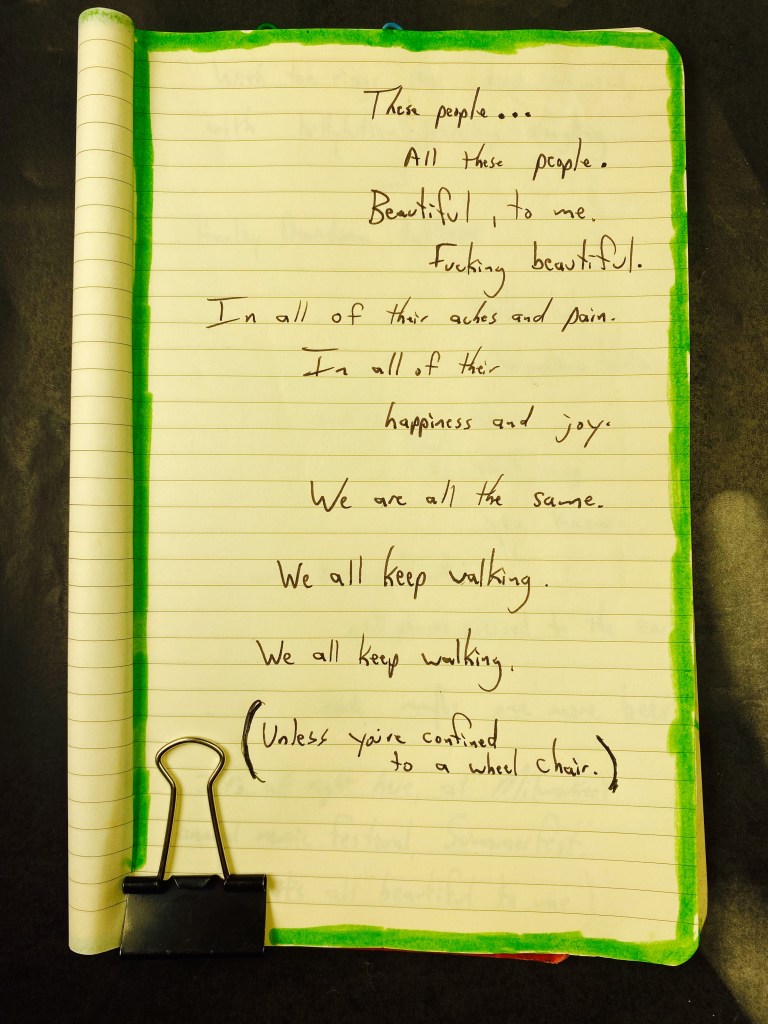 These people...
All these people.
Beautiful, to me.
Fucking beautiful.
In all of their aches and pain.
In all of their
happiness and joy.
We are all the same.
We all keep walking.
We all keep walking.
(Unless you're confined
to a wheel chair.)